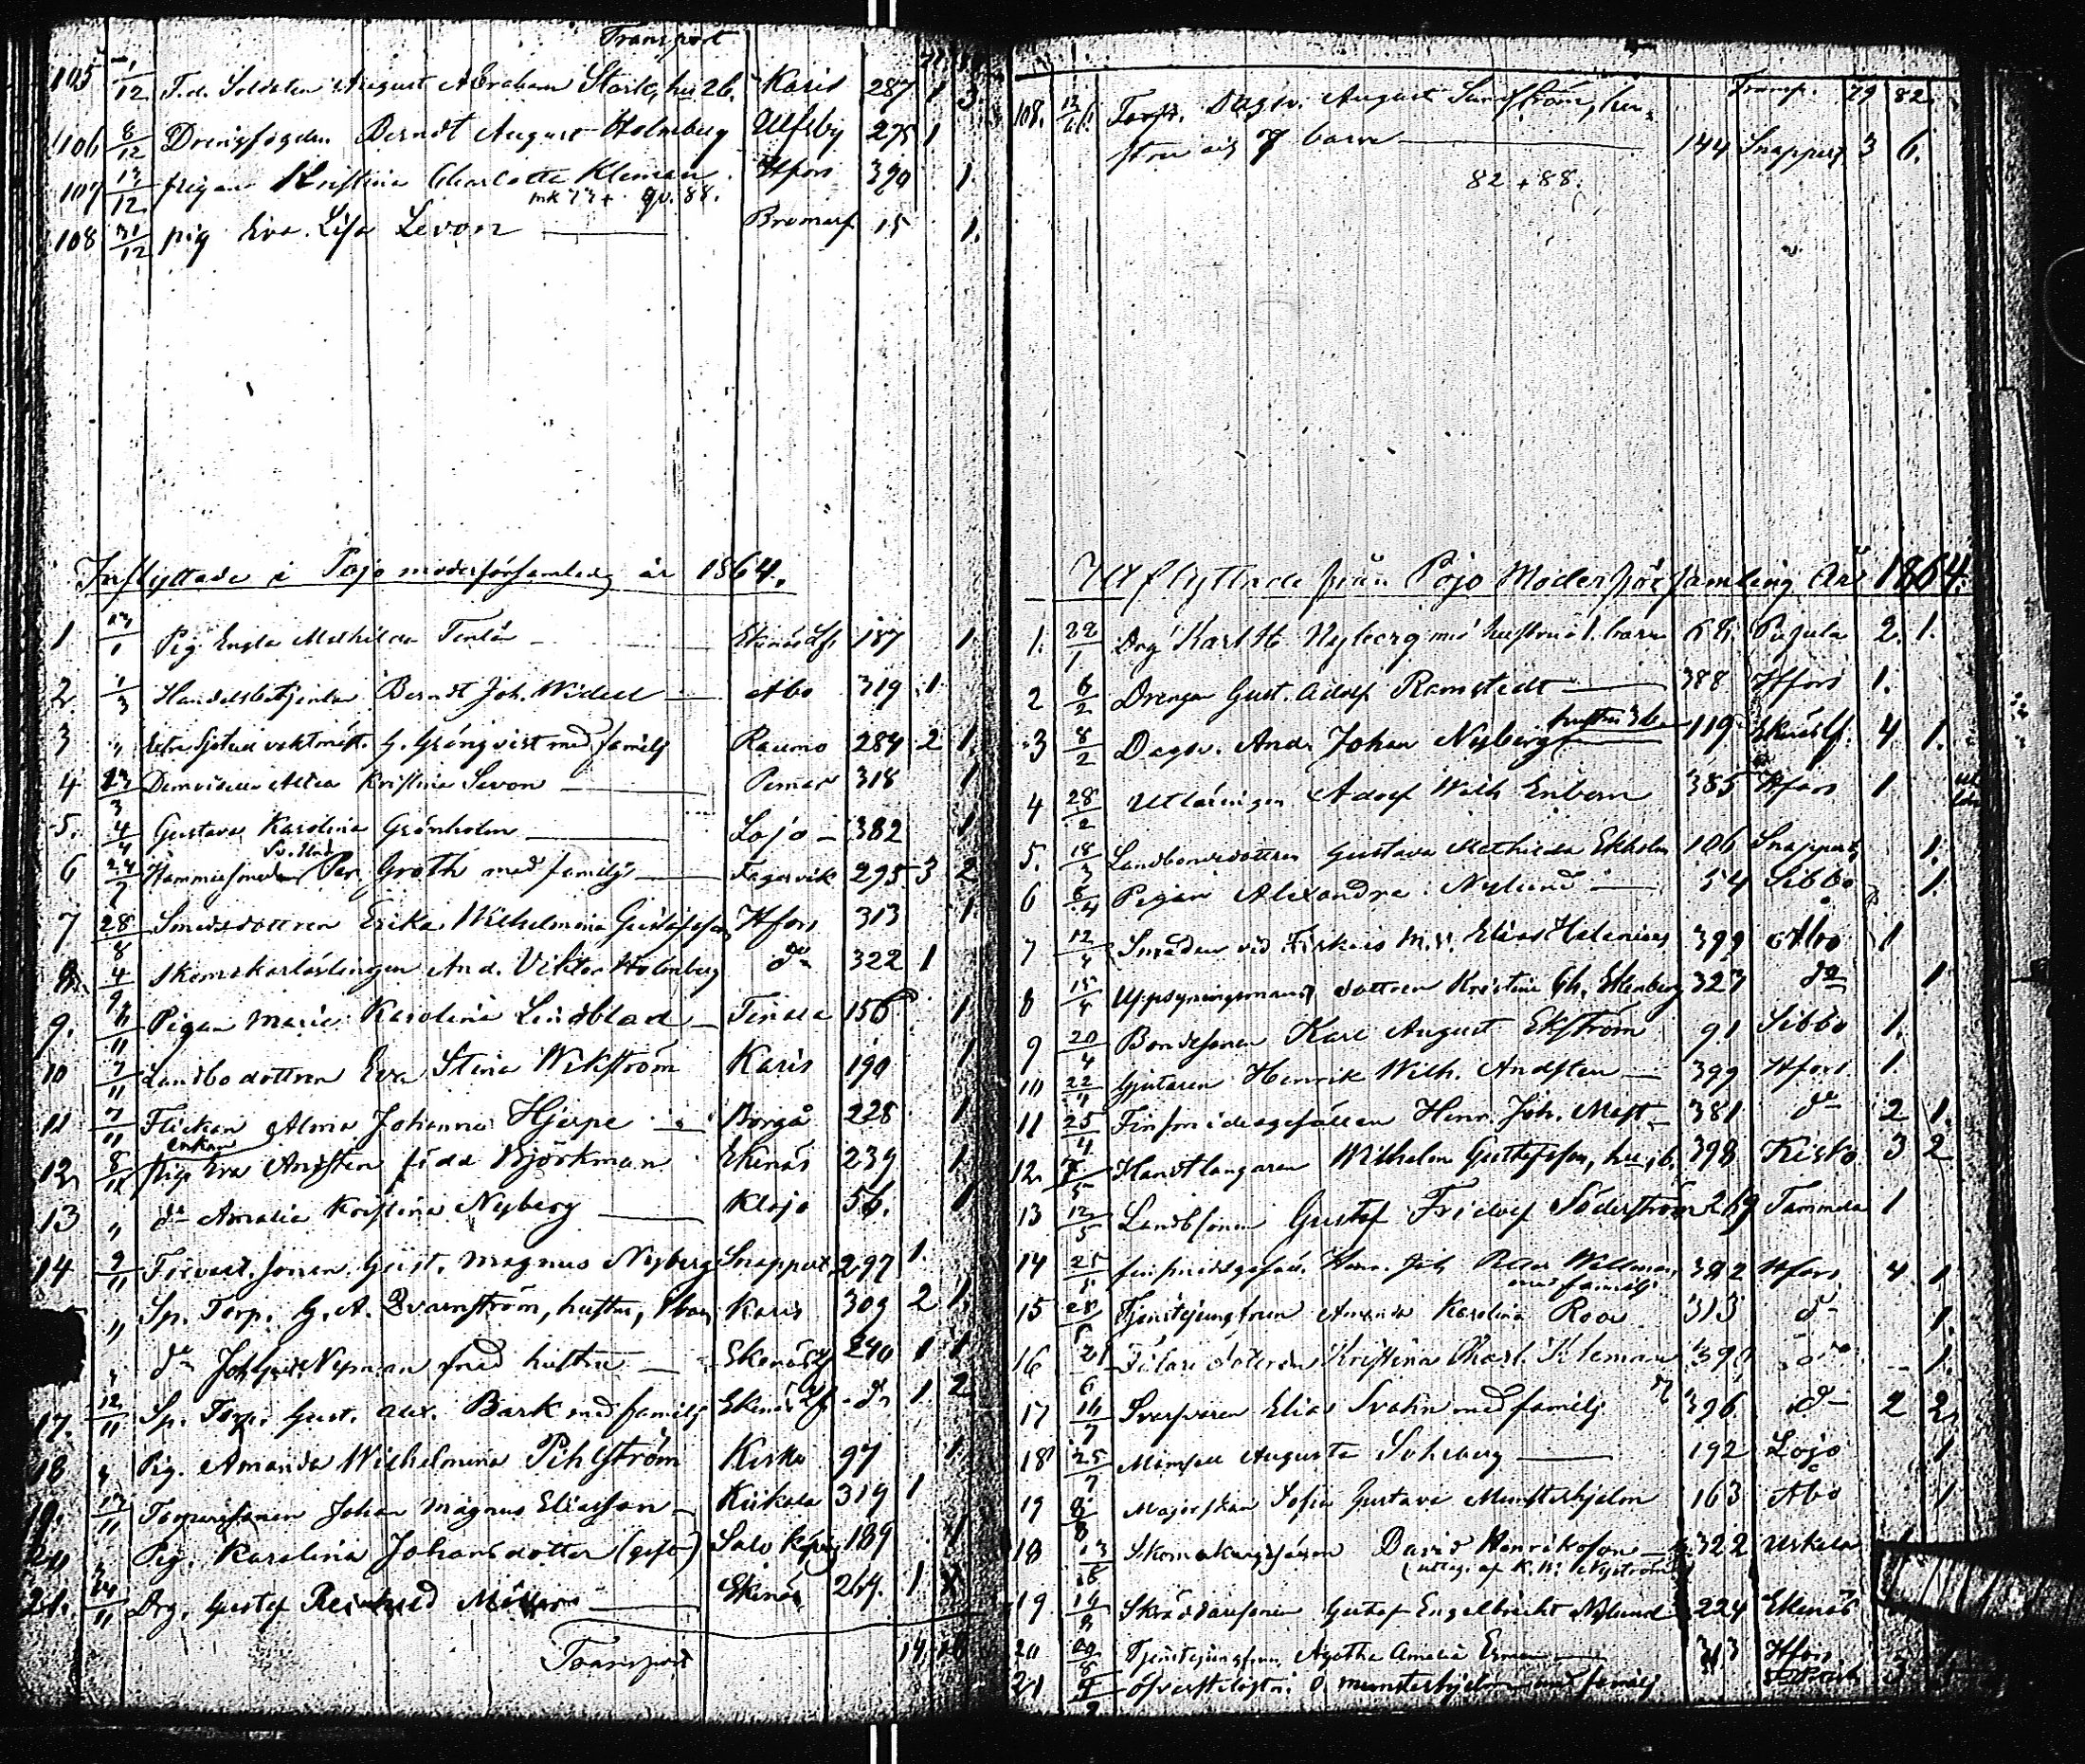 Transport
105 1/12 F.d. Soldaten August Abraham Stark, hu 2b. Karis 287 1 3.
106 8/12 Drengfogden Berndt August Holmberg Ulfsby 275 1
107 13/12 pigan Kristina Charlotta Kleman Hfors 390 1.
mk 73 + qv. 88.
108 31/12 pig Eva Lisa Levon Bromarf 15 1.
Inflyttade i Pojo moderförsamling år 1864.
1 Pig Engla Mathilda Ekenäs Lf. 187 1.
2. 1/3 Handelsbetjenten Berndt Joh. Widell Åbo 319 1
3 " G. Grönqvist med familj Raumo 284 2 1.
4 23/3 Demoiselle Kristina Levon Pemar 318 1
5. 4/4 Gustava Karolina Grönholm Lojo 382 1
6 24/7 Hammarsmeden Per Groth med familj Fagervik 295 3 2
7 28/8 Smedsdottren Erika Wilhelmina Gustafsson Hfors 313 1
4/9 And. Viktor Holmberg do 322 1
9. Pigan Maria Karolina Lindblad 156 1
10 7/11 Landbodottren Eva Stina Wikström Karis 190 1
11 7/11 Flickan Alma Johanna Hjerpe Borgå 228 1
enkan
12 8/11 pig Eva Andsten född Björkman Ekenäs 239 1.
13 " do Amalia Kristina Nyberg Klojo 56. 1
14 9/11 Gust. Magnus Nyberg Snappert. 297 1.
" Sp. Torp. G. A. Qvarnström, hustru, 1 barn Karis 309 2 1.
" do Nyman med hustru Ekenäs Lf 240 1 1
17. 12/11 Sp. Torp. Gust. Alex. Bark med familj Ekenäs Lf. do 1 2
18 " Pig. Amanda Wilhelmina Pihlström Kisko 97 1.
19. 17/11 Torparesonen Johan Magnus Eliasson Kiikala 319 1
20 " Pig. Karolina Johansdotter (gift) Salo köping 189 1
21. 24/11 Drg. Gustaf Ekenäs 264. 1
Transport
Transp. 79 82
108. Torp. Dags. August Sundström, hu-
stru och 7 barn 144 Snappert. 3 6.
82 + 88.
Utflyttade från Pojo Moderförsamling År 1864.
1. 22/1 Drg Karl H Nyberg med hustru o 1. barn 68. Pusula 2. 1.
2 6/2 Drengen Gust. Adolf Ramstedt 388 Hfors 1.
3 8/2 Dagsv. And. Johan Nyberg hustru 3 b. 119. Ekenäs Lf. 4 1.
4 28/2 Utlänningen Adolf Wilh Enbom 385 Hfors 1
5. 18/3 Landbondedottren Gustava Mathilda Ekholm 106 Snappert. 1.
6 6/4 Pigan Alexandra Nylund 54 Sibbo 1.
7 12/4 Smeden vid Fiskars M.V. Elias Helenius 399 Åbo 1
8 15/4 Uppsyningsmans dottren Kristina Ch. Ekenberg 327 do 1
9 20/4 Bondesonen Karl August Ekström 91 Sibbo 1.
10 22/4 Gjutaren Henrik Wilh. Andsten 399 Hfors. 1.
11 25/4 Finsmidesgesällen Henr. Joh. Mast 381 do 2 1.
12. 7/5 Handtlangaren Wilhelm Gustafsson, hu, b. 398 Kisko 3 2
13 12/5 Landbsonen Gustaf Fridolf Söderström 219 Tammela 1
14 25/5 finsmidsgesäl. Henr. Joh Willman med familj 392 Hfors 4 1
15 28/5 Tjenstejungfrun Amanda Karolina Roos 313 do 1.
16 21/6 Filaredotteren Kristina Charl. Kleman 390 do 1.
17 14/7 Svarfvaren Elias Svahn med familj 396 do 2 2
18 25/7 Mamsell Augusta 192 Lojo 1
19 8/8 Majorskan Sofia Gustava Munsterhjelm 163 Åbo 1
18 13/8 Skomakaregesällen David Henriksson 322 Uskela 1
(uttag. af K. W. Nyström)
19 14/8 Skräddaresonen Gustaf Engelbrecht Nylund 224 Ekenäs
20 Tjenstejungfrun Agatha Amalia 313 Hfors
21 Öfverstelöjtn. O Munsterhjelm med familj 3